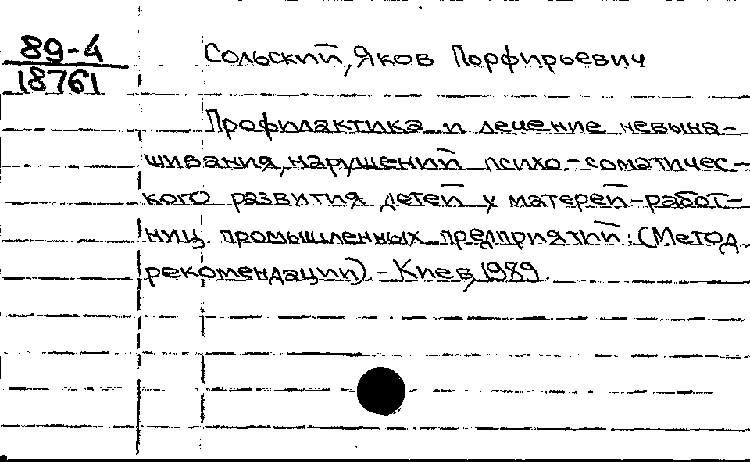 89-4
18761
Сольский, Яков Порфирьевич
Профилактика и лечение невына-
шивания, нарушений психо-соматичес-
кого развития детей у матерей-работ-
ниц промышленных предприятий: (Метод.
рекомендации). - Киев, 1989.